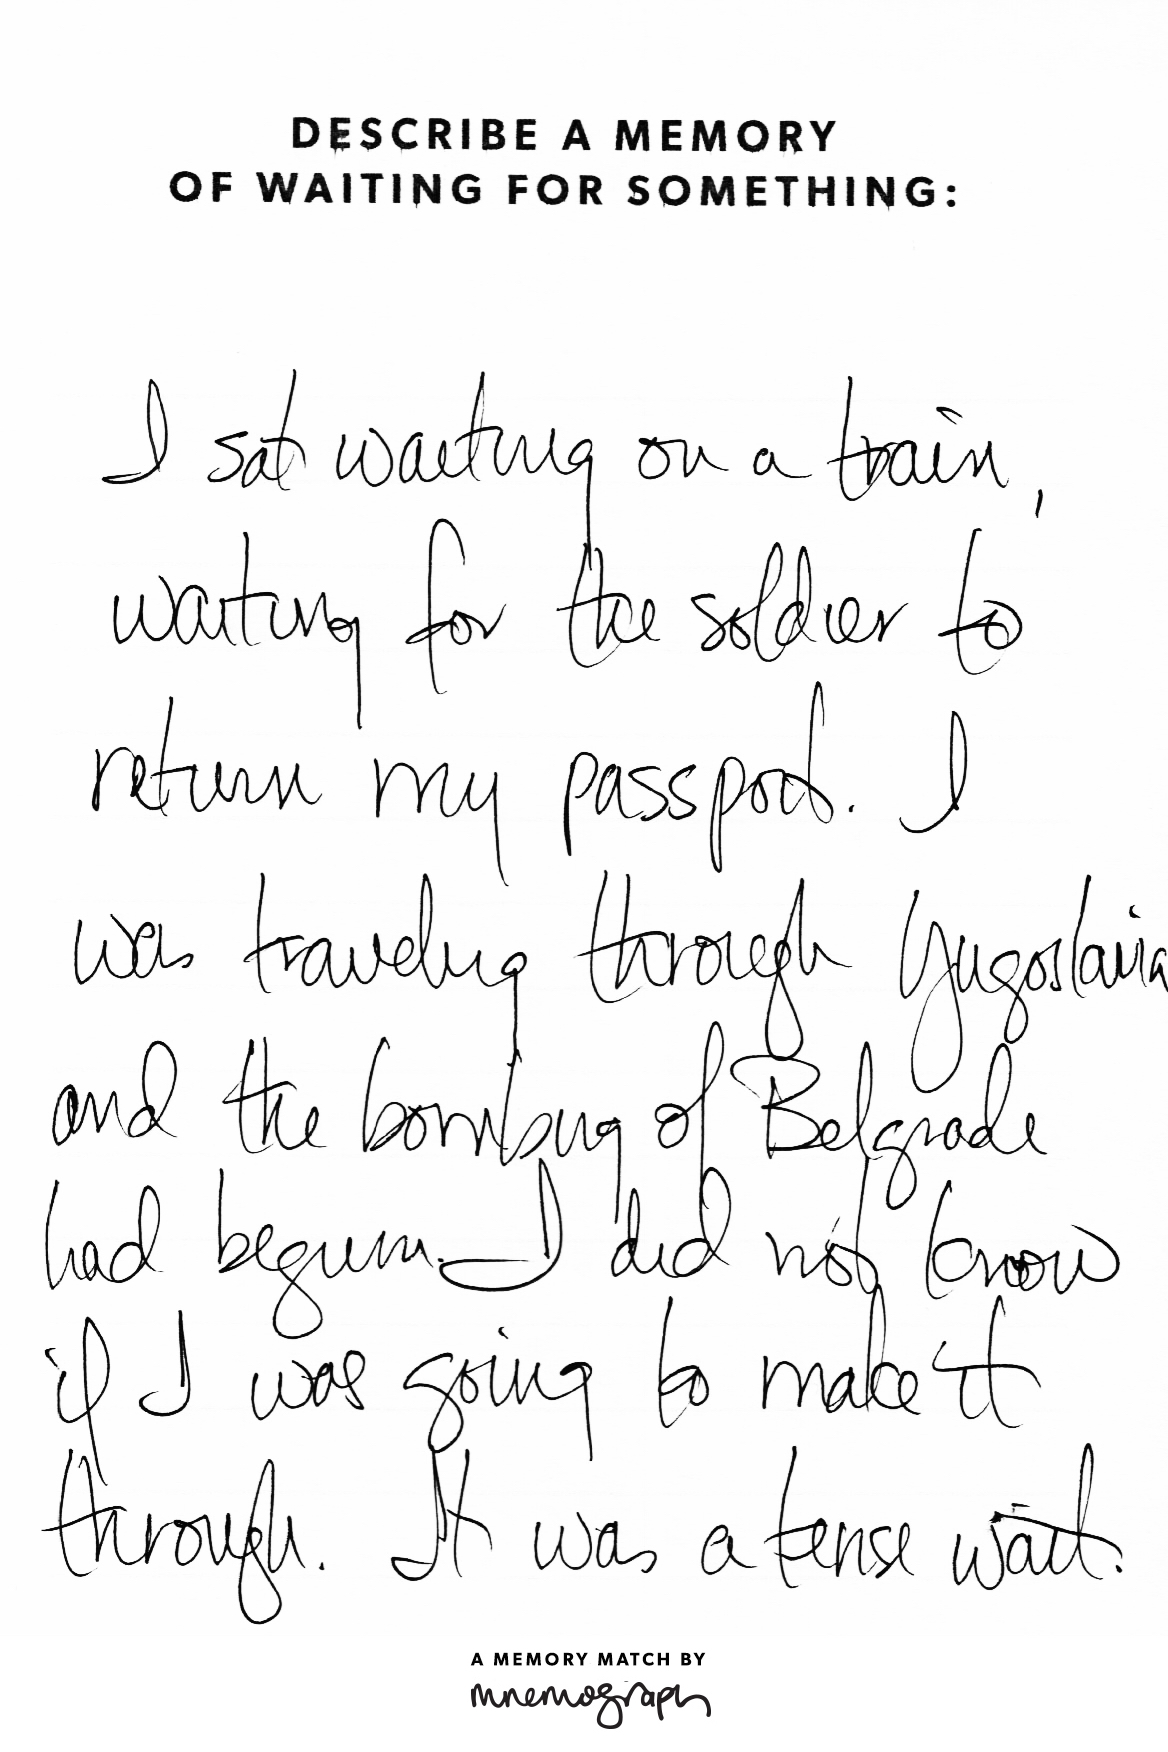 DESCRIBE A MEMORY
OF WAITING FOR SOMETHING:
I sat waiting on a train,
waiting for the soldier to
return my passport. I
was traveling through Yugoslavia
and the bombing of Belgrade
had begun. I did not know
if I was going to make it
through. It was a tense wait.
A MEMORY MATCH BY
mnemograph